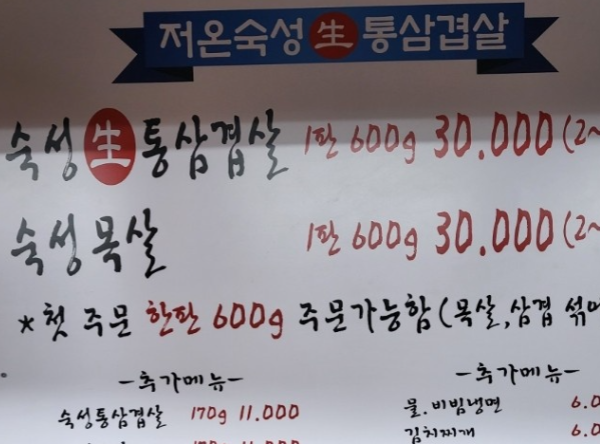 저온숙성 生 통삼겹살
숙성 生 통삼겹살 1판 600g 30.000 (2~
숙성목살 1판 600g 30.000 (2~
*첫 주문 한판 600g 주문가능함 (목살,삼겹 섞어
-추가메뉴-
숙성통삼겹살 170g 11.000
-추가메뉴-
물.비빔냉면 6.0
김치찌개 6.0